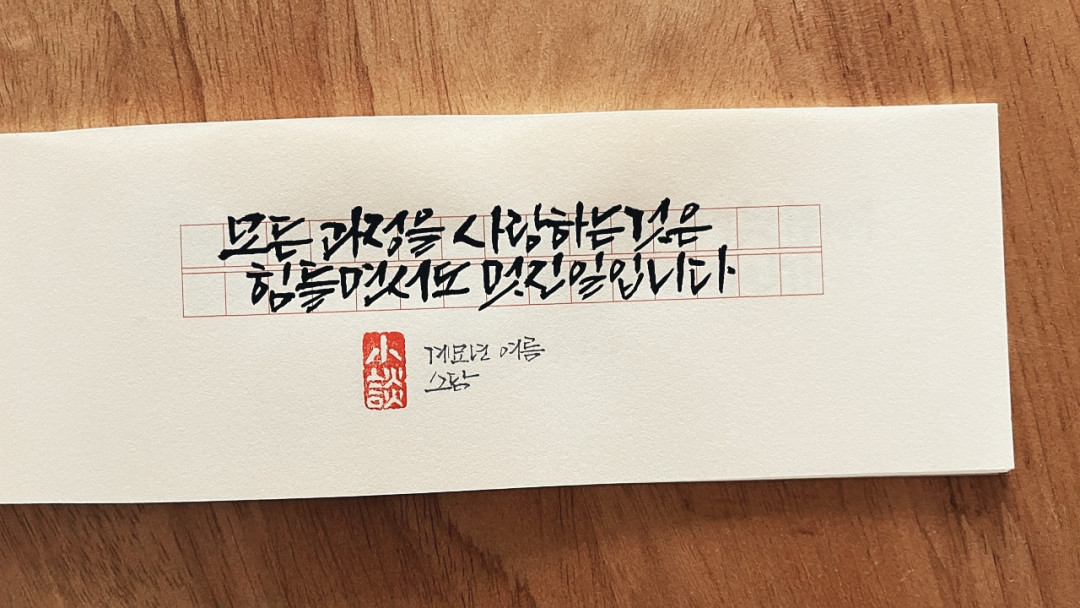 모든 과정을 사랑하는것은
힘들면서도 멋진일입니다
小談
계묘년 여름
소담